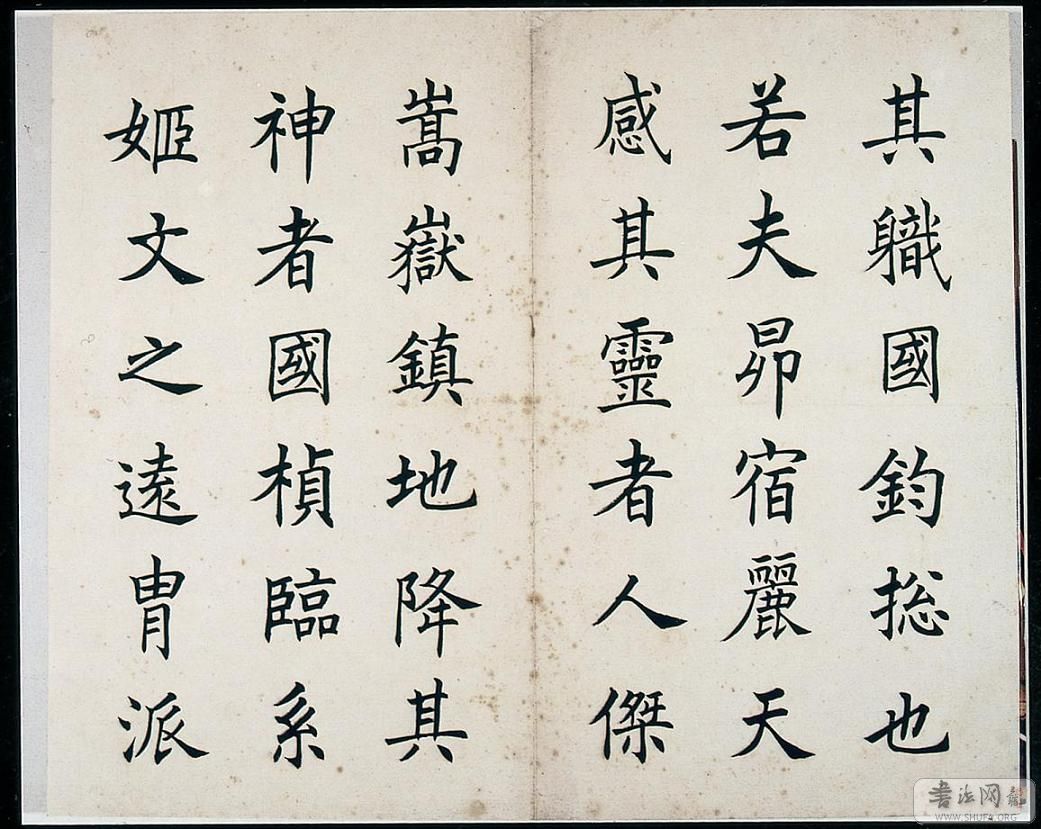 其軄國鈞揔也
若夫昴宿麗天
感其靈者人傑
嵩嶽鎮地降其
神者國楨臨系
姬文之遠冑派
書法网
WWW.SHUFA.ORG